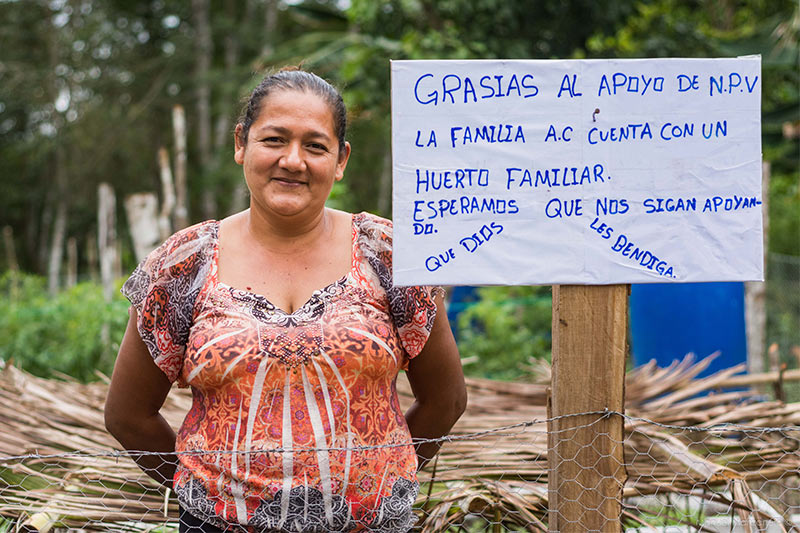 GRASIAS AL APOYO DE N.P.V
LA FAMILIA A.C CUENTA CON UN
HUERTO FAMILIAR.
ESPERAMOS QUE NOS SIGAN APOYAN-
DO.
QUE DIOS LES BENDIGA.